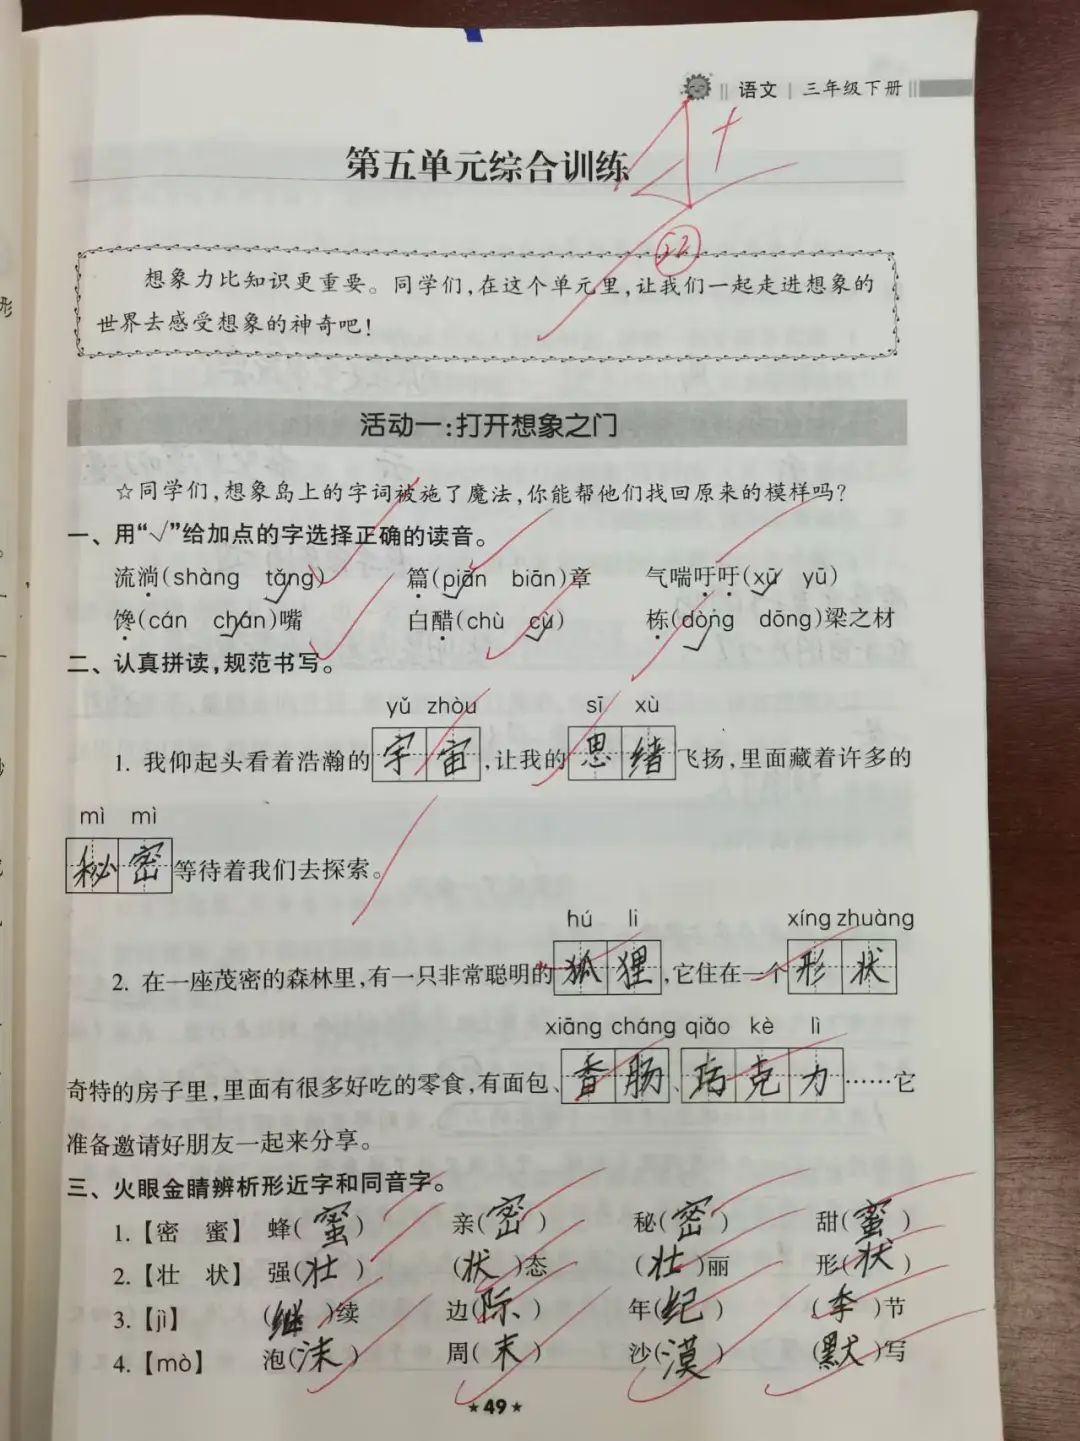 语文 | 三年级下册
第五单元综合训练
想象力比知识更重要。同学们,在这个单元里,让我们一起走进想象的
世界去感受想象的神奇吧!
活动一:打开想象之门
☆同学们,想象岛上的字词被施了魔法,你能帮他们找回原来的模样吗?
一、用“√”给加点的字选择正确的读音。
流淌(shàng tǎng) 篇(piān biān)章 气喘吁吁(xū yū)
馋(cán chán)嘴 白醋(chù cù) 栋(dòng dōng)梁之材
二、认真拼读,规范书写。
yǔ zhòu sī xù
1. 我仰起头看着浩瀚的宇宙,让我的思绪飞扬,里面藏着许多的
mì mì
秘密等待着我们去探索。
hú li xíng zhuàng
2. 在一座茂密的森林里,有一只非常聪明的狐狸,它住在一个形状
xiāng cháng qiǎo kè lì
奇特的房子里,里面有很多好吃的零食,有面包、香肠、巧克力……它
准备邀请好朋友一起来分享。
三、火眼金睛辨析形近字和同音字。
1.【密 蜜】 蜂(蜜) 亲(密) 秘(密) 甜(蜜)
2.【壮 状】 强(壮) (状)态 (壮)丽 形(状)
3.【jì】 (继)续 边(际) 年(纪) (季)节
4.【mò】 泡(沫) 周(末) 沙(漠) (默)写
★49★